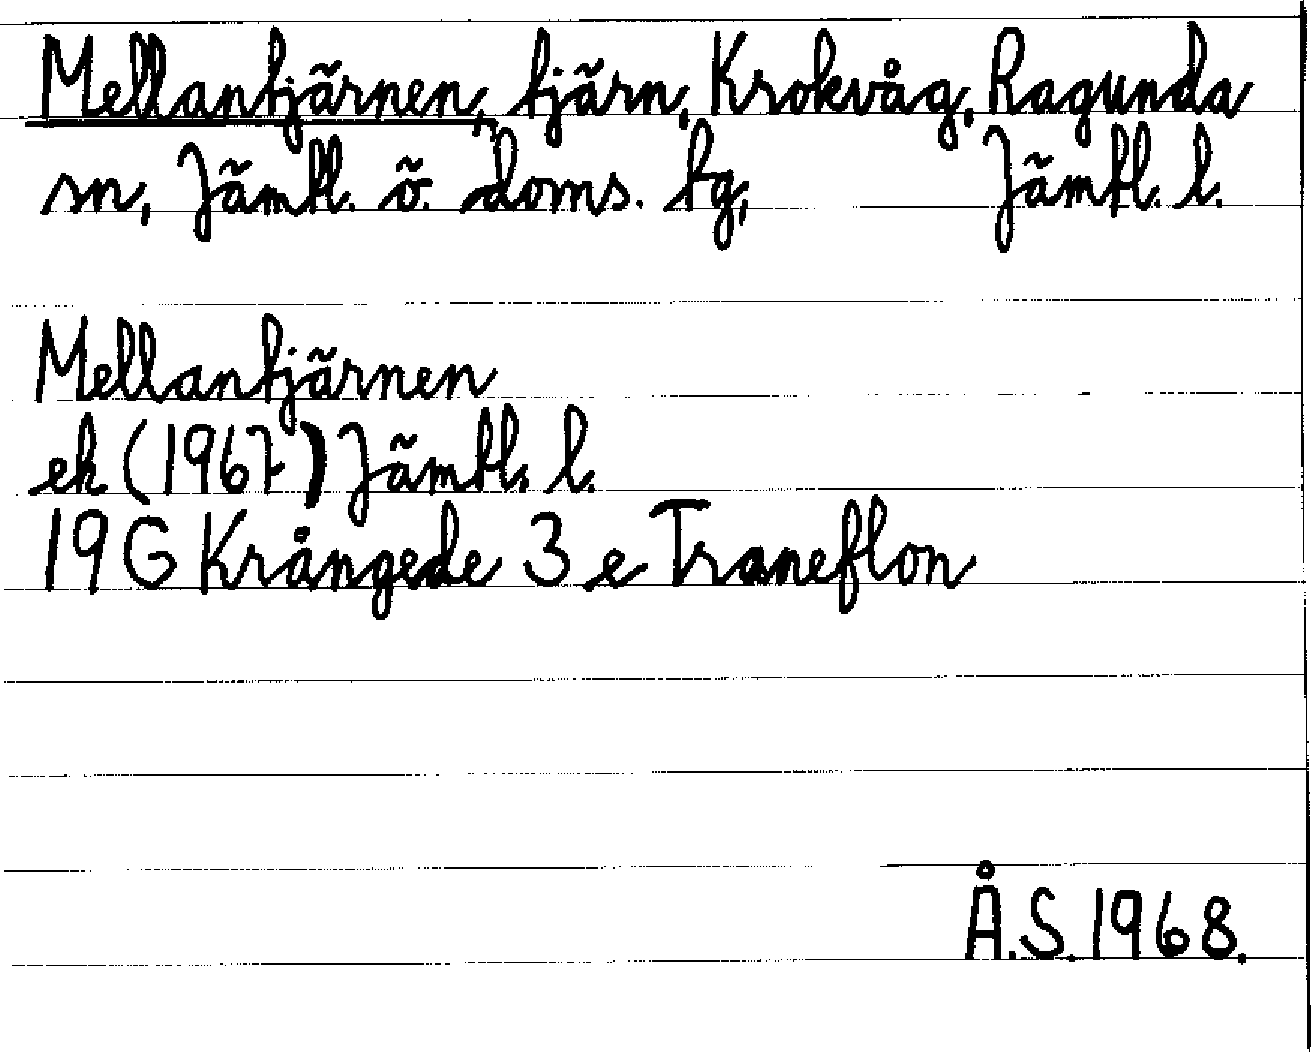 Mellantjärnen, tjärn, Krokvåg, Ragunda
sn, Jämtl. ö. doms. tg, Jämtl. l.
Mellantjärnen
ek (1967) Jämtl. l.
19 G Krångede 3 e Traneflon
Å.S. 1968.